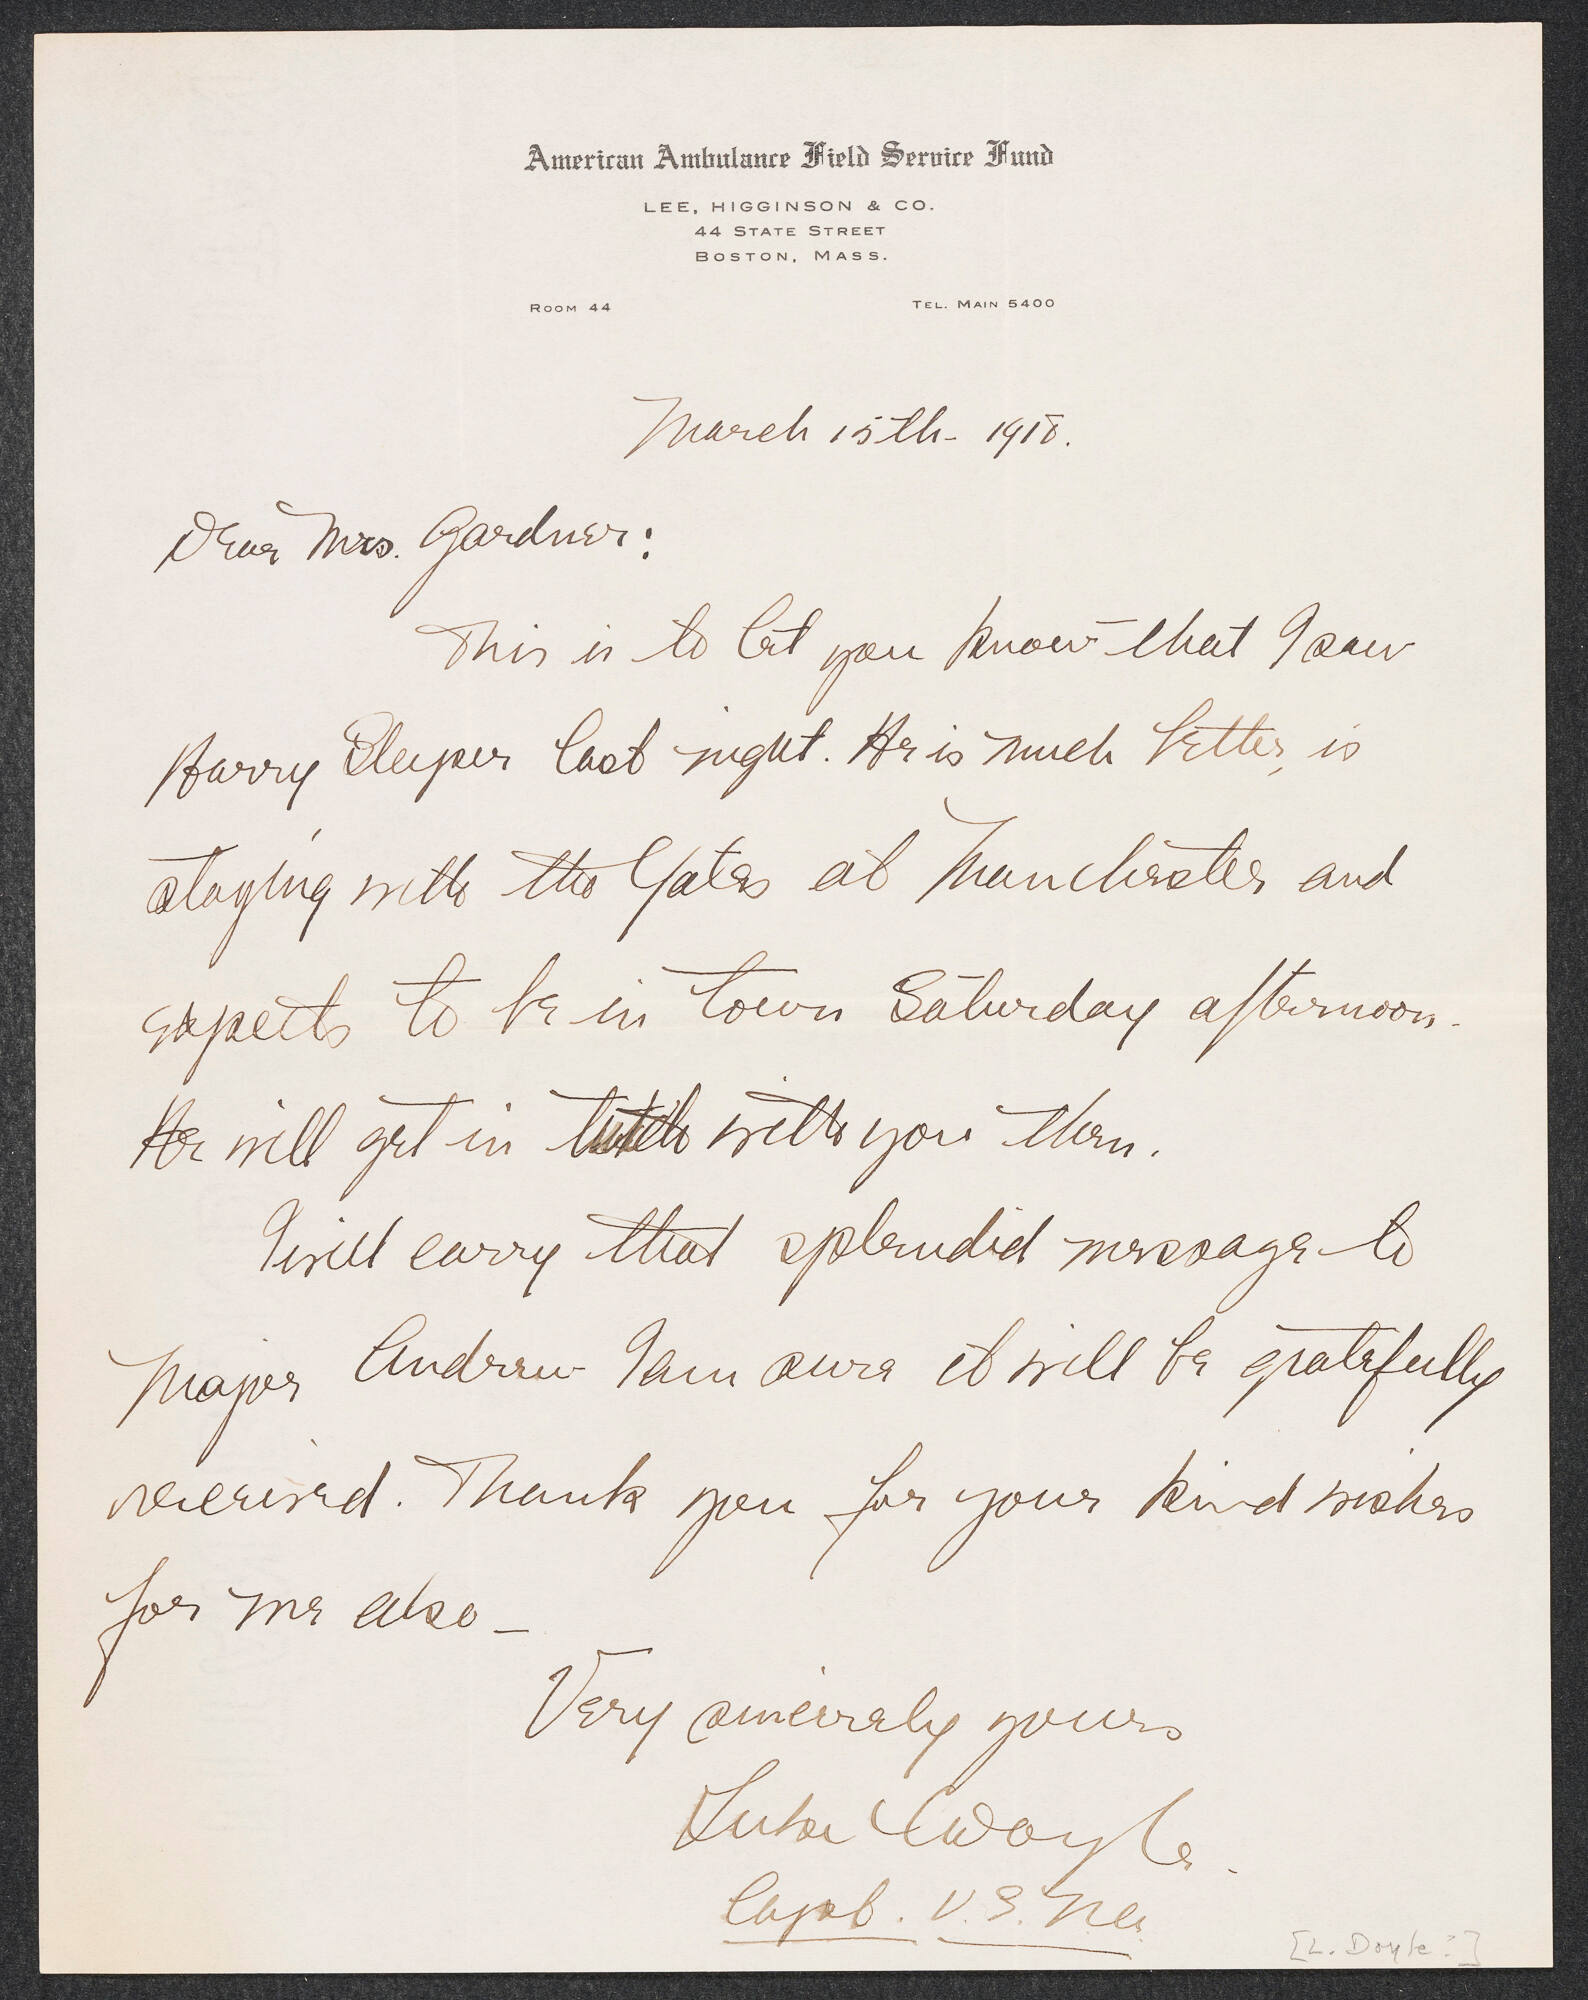 American Ambulance Field Service Fund
LEE, HIGGINSON & CO.
44 STATE STREET
BOSTON, MASS.
ROOM 44 TEL. MAIN 5400
March 15th- 1918.
Dear Mrs. Gardner:
This is to let you know that I saw
Harry Sleeper last night. He is much better, is
staying with the Yates at Manchester and
expects to be in town Saturday afternoon.
He will get in with you then.
I will carry that splendid message to
Major Andrew I am sure it will be gratefully
received. Thank you for your kind wishes
for me also_
Very sincerely yours
Luke C Doyle.
Capt. U.S.
[L. Doyle?]